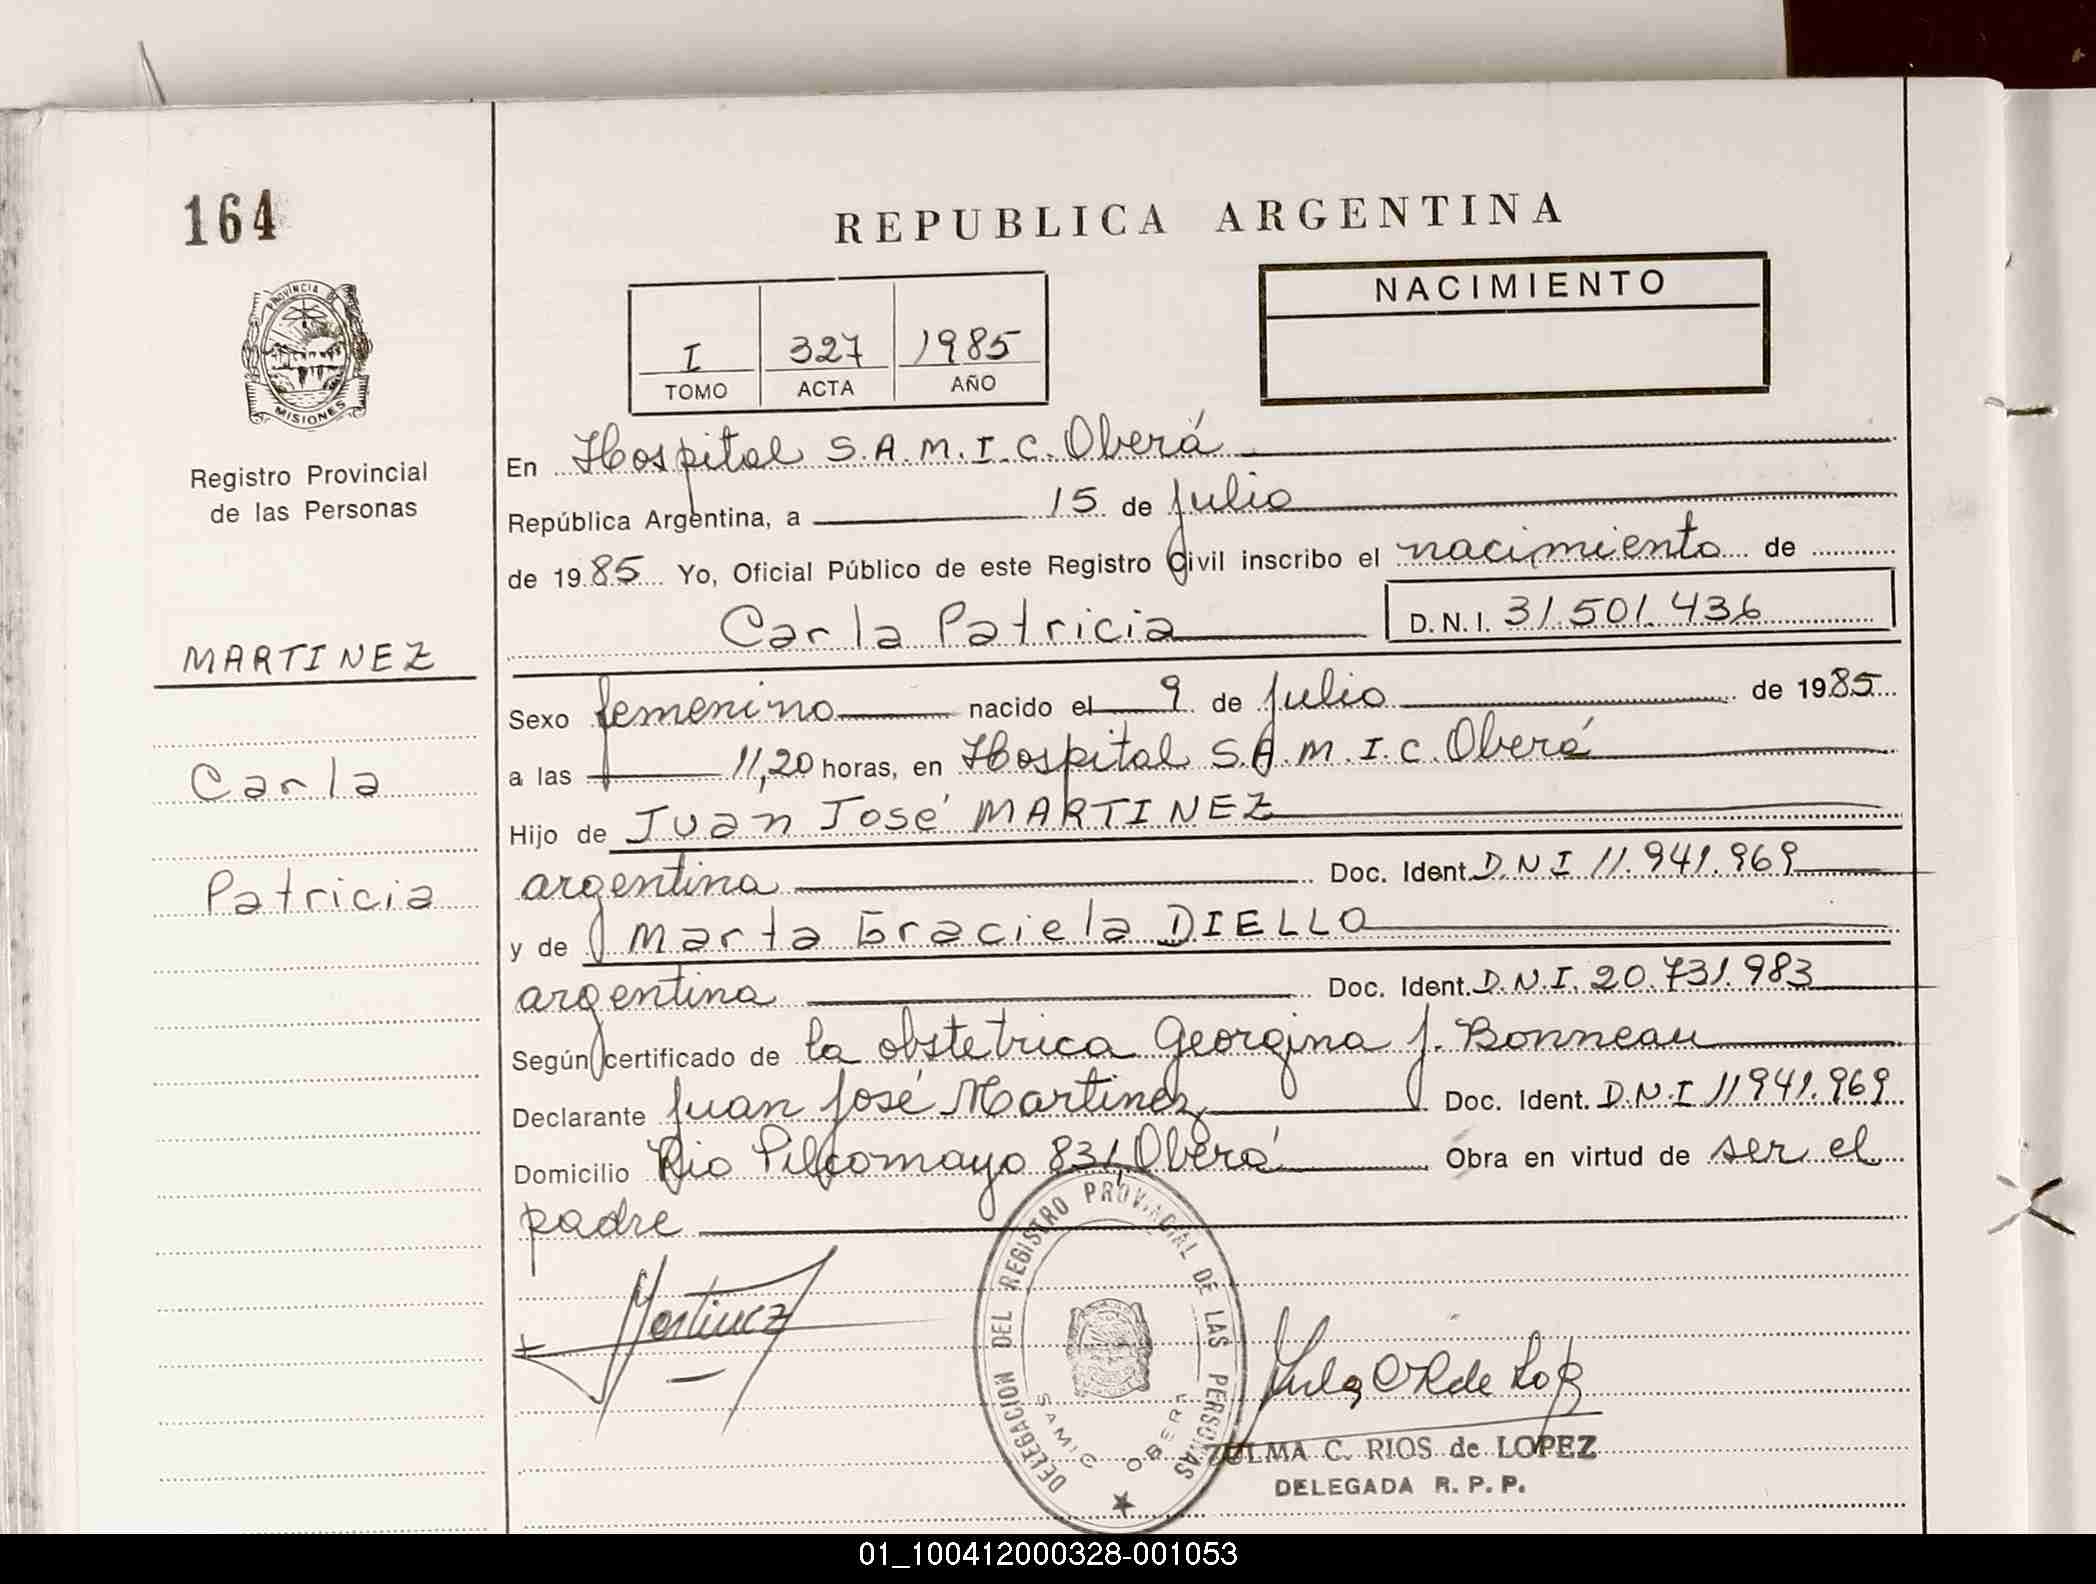 164
REPUBLICA ARGENTINA
PROVINCIA DE
MISIONES
Registro Provincial
de las Personas
I 327 1985
TOMO ACTA AÑO
NACIMIENTO
En Hospital S.A.M.I.C. Oberá
República Argentina, a 15 de Julio
de 1985 Yo, Oficial Público de este Registro Civil inscribo el nacimiento de
Carla Patricia D.N.I. 31.501.436
MARTINEZ
Carla
Patricia
Sexo femenino nacido el 9 de Julio de 1985
a las 11,20 horas, en Hospital S.A.M.I.C. Oberá
Hijo de Juan José MARTINEZ
argentina Doc. Ident. D.N.I 11.941.969
y de Marta Graciela DIELLO
argentina Doc. Ident. D.N.I. 20.731.983
Según certificado de la obstetrica Georgina J. Bonneau
Declarante Juan José Martinez Doc. Ident. D.N.I 11941.969
Domicilio Rio Pilcomayo 831 Oberá Obra en virtud de ser el
padre
Martinez
DELEGACION DEL REGISTRO PROVINCIAL DE LAS PERSONAS
SAMIC OBERA
ZULMA C. RIOS de LOPEZ
DELEGADA R. P. P.
01_100412000328-001053